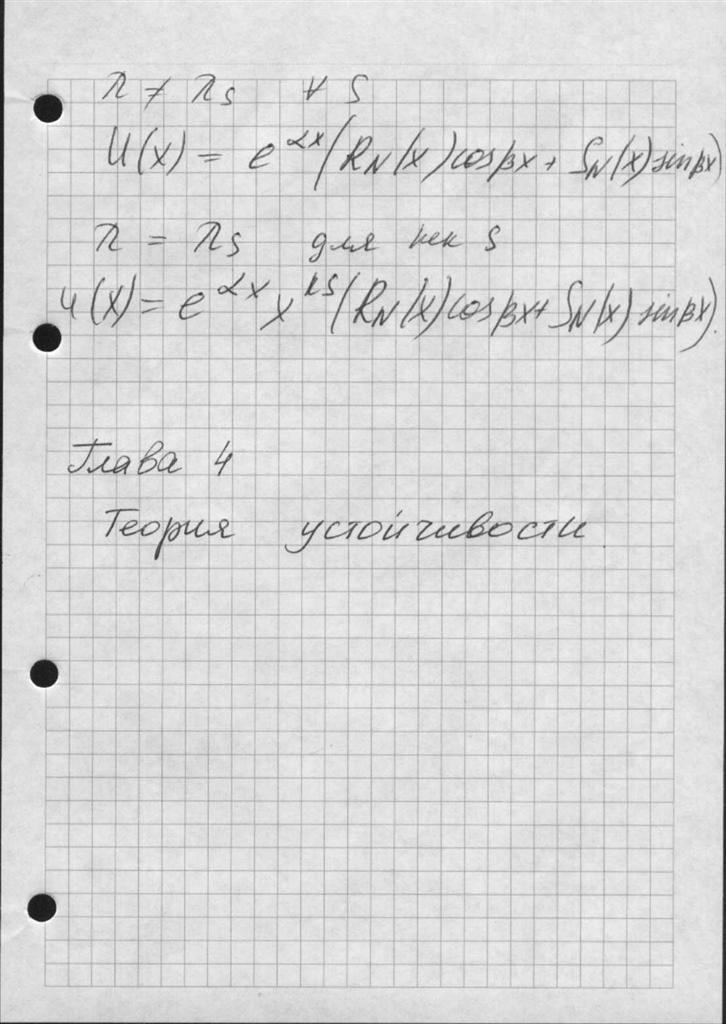 λ ≠ λs ∀ s
U(x) = e^αx (R_N(x) cos βx + S_N(x) sin βx)
λ = λs для нек s
u(x) = e^αx x^ks (R_N(x) cos βx + S_N(x) sin βx).
Глава 4
Теория устойчивости.